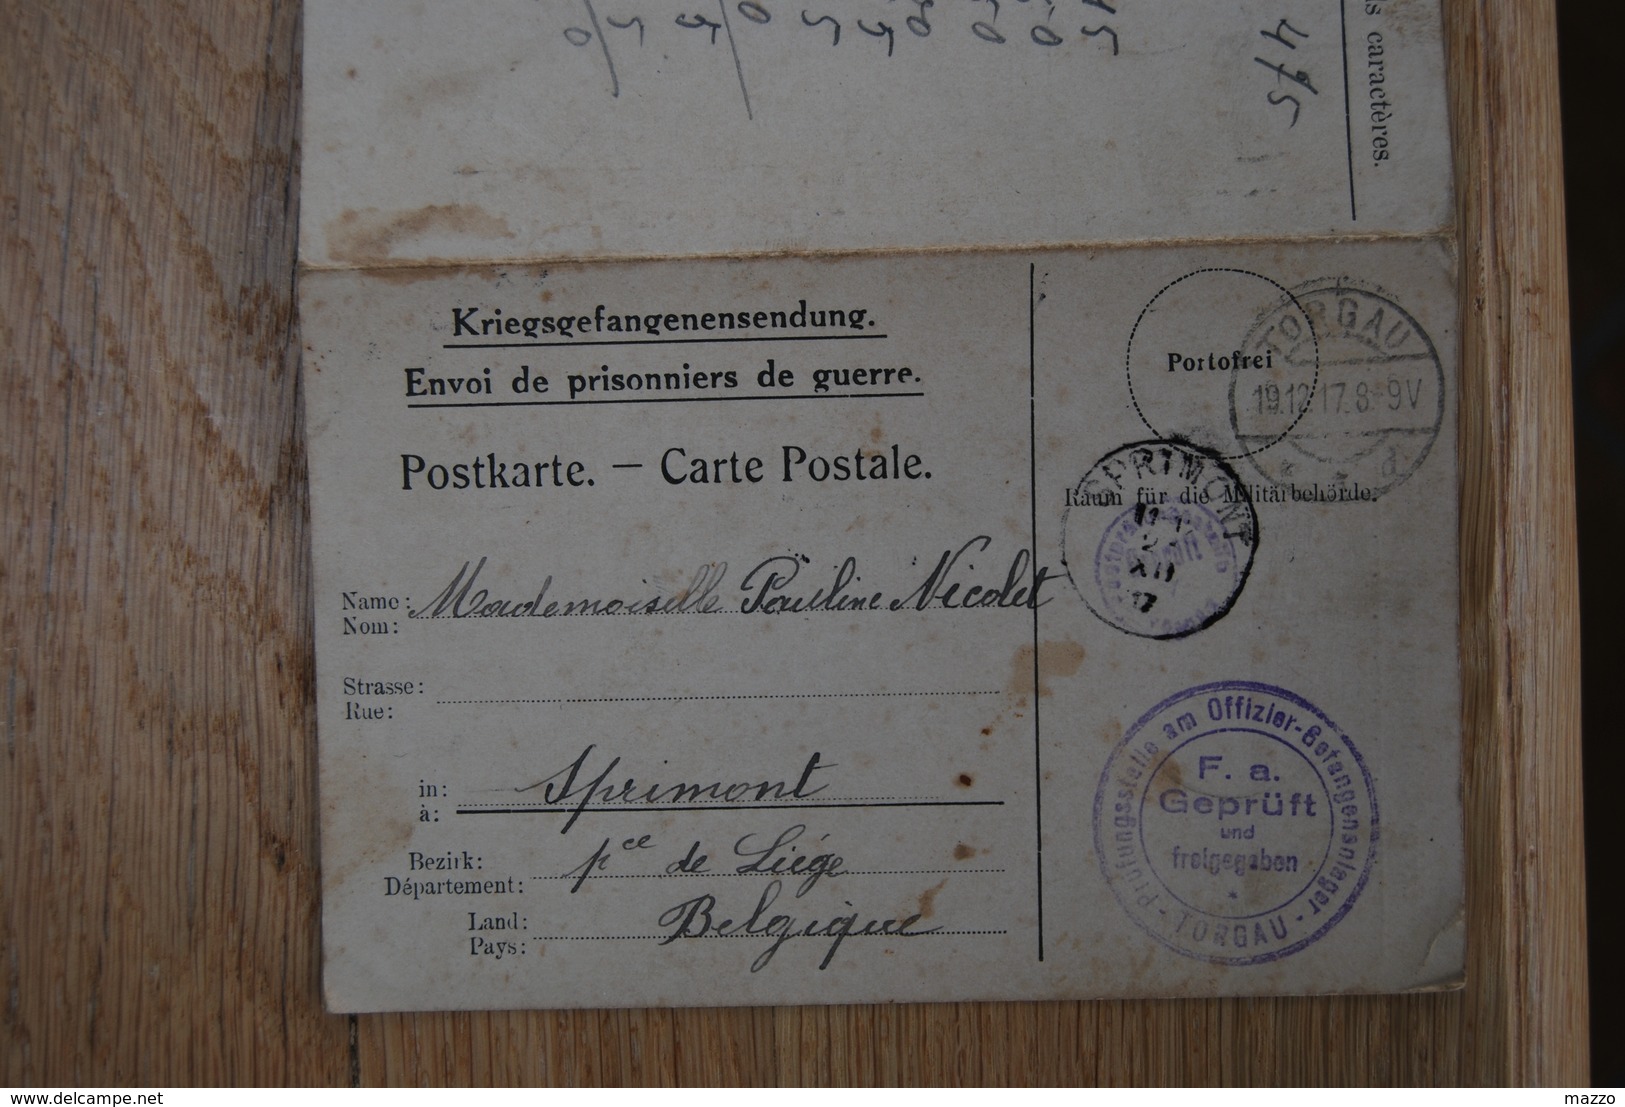 475
s caractères.
Kriegsgefangenensendung.
Envoi de prisonniers de guerre.
Postkarte. — Carte Postale.
Portofrei
TORGAU
19.12.17.8-9V
Raum für die Militärbehörde.
SPRIMONT
XII
17
Name: Mademoiselle Pauline Nicolet
Nom:
Strasse:
Rue:
in: Sprimont
à:
Bezirk: pce de Liége
Département:
Land: Belgique
Pays:
Prüfungsstelle am Offizier-Gefangenenlager - TORGAU -
F. a.
Geprüft
und
freigegeben
delcampe.net
mazzo